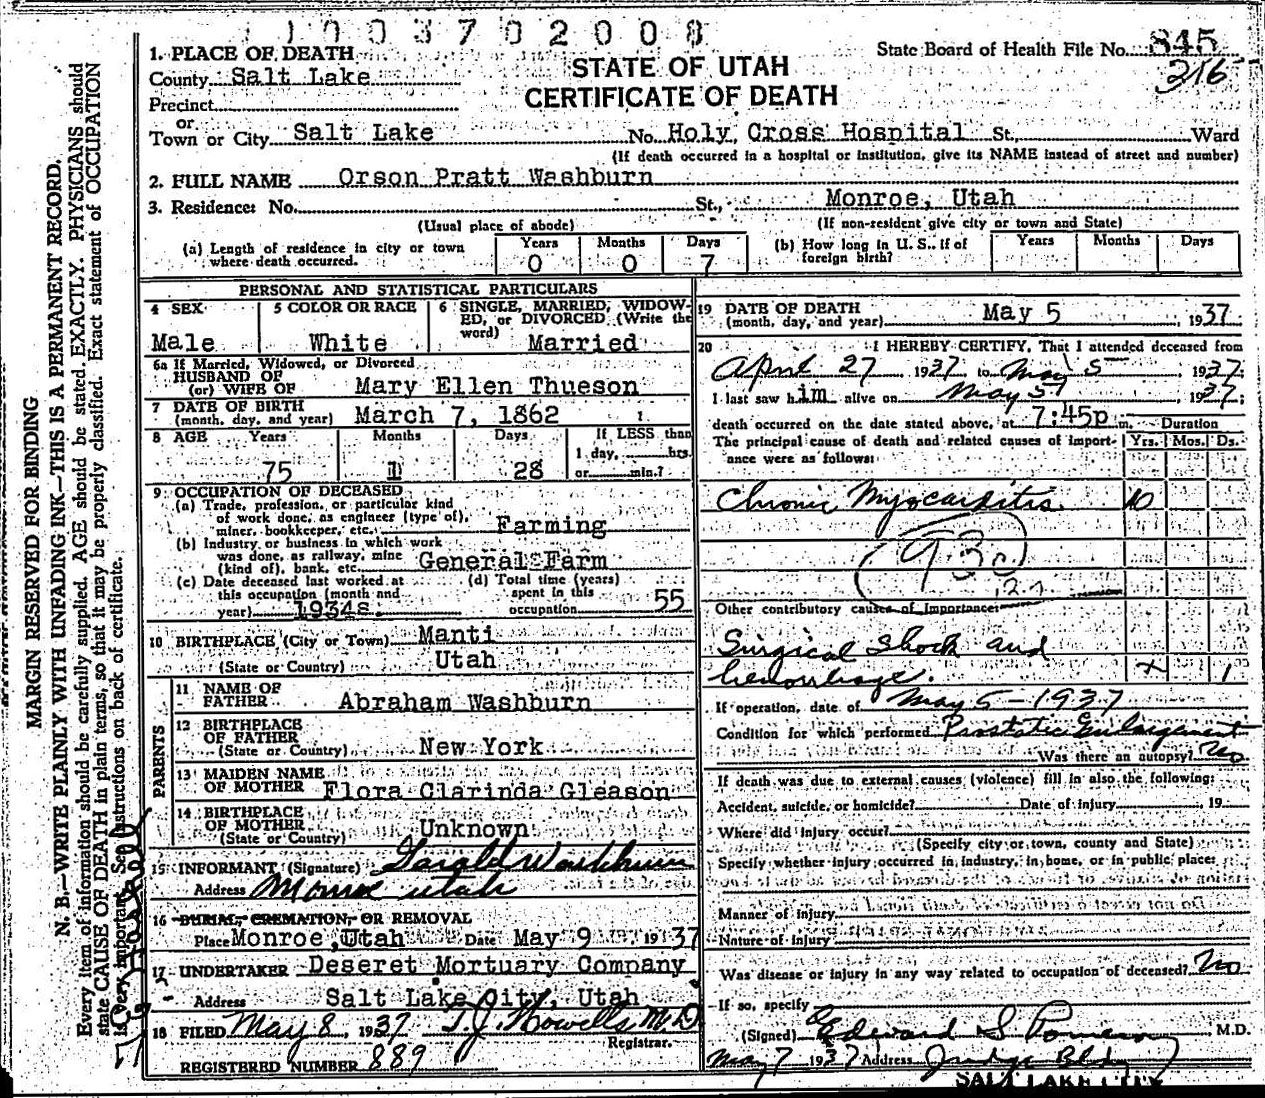 1003702008
State Board of Health File No. 845
316
STATE OF UTAH
CERTIFICATE OF DEATH
1. PLACE OF DEATH
County Salt Lake
Precinct
or
Town or City Salt Lake No. Holy Cross Hospital St., Ward
(If death occurred in a hospital or institution, give its NAME instead of street and number)
2. FULL NAME Orson Pratt Washburn
3. Residence: No. St., Monroe, Utah
(Usual place of abode) (If non-resident give city or town and State)
(a) Length of residence in city or town where death occurred. Years 0 Months 0 Days 7
(b) How long in U. S., if of foreign birth? Years Months Days
PERSONAL AND STATISTICAL PARTICULARS
4 SEX Male
5 COLOR OR RACE White
6 SINGLE, MARRIED, WIDOWED, or DIVORCED (Write the word) Married
6a If Married, Widowed, or Divorced
HUSBAND OF
(or) WIFE OF Mary Ellen Thueson
7 DATE OF BIRTH
(month, day, and year) March 7, 1862
8 AGE Years 75 Months 1 Days 28 If LESS than 1 day, hrs. or min.?
9 OCCUPATION OF DECEASED
(a) Trade, profession, or particular kind
of work done, as engineer (type of),
miner, bookkeeper, etc. Farming
(b) Industry or business in which work
was done, as railway, mine
(kind of), bank, etc. General Farm
(c) Date deceased last worked at
this occupation (month and
year) 1934s.
(d) Total time (years)
spent in this
occupation 55
10 BIRTHPLACE (City or Town) Manti
(State or Country) Utah
PARENTS
11 NAME OF
FATHER Abraham Washburn
12 BIRTHPLACE
OF FATHER
(State or Country) New York
13 MAIDEN NAME
OF MOTHER Flora Clarinda Gleason
14 BIRTHPLACE
OF MOTHER
(State or Country) Unknown
15 INFORMANT (Signature) Garald Washburn
Address Monroe Utah
16 BURIAL, CREMATION, OR REMOVAL
Place Monroe, Utah Date May 9 1937
17 UNDERTAKER Deseret Mortuary Company
Address Salt Lake City, Utah
18 FILED May 8, 1937 T. J. Howells M.D
Registrar.
REGISTERED NUMBER 889
19 DATE OF DEATH
(month, day, and year) May 5, 1937
20 I HEREBY CERTIFY, That I attended deceased from
April 27, 1937 to May 5, 1937;
I last saw him alive on May 5, 1937;
death occurred on the date stated above, at 7:45p m.
Duration
The principal cause of death and related causes of importance were as follows: Yrs. Mos. Ds.
Chronic Myocarditis 10
93c
Other contributory causes of importance:
Surgical Shock and
hemorrhage. x 1
If operation, date of May 5-1937
Condition for which performed Prostatic Enlargement
Was there an autopsy? No
If death was due to external causes (violence) fill in also the following:
Accident, suicide, or homicide? Date of injury , 19
Where did injury occur?
(Specify city or town, county and State)
Specify whether injury occurred in industry, in home, or in public place:
Manner of injury
Nature of injury
Was disease or injury in any way related to occupation of deceased? No
If so, specify
(Signed) Edward S Pomeroy M.D.
May 7 1937 Address Judge Bldg
SALT LAKE CITY
MARGIN RESERVED FOR BINDING
N. B.—WRITE PLAINLY WITH UNFADING INK—THIS IS A PERMANENT RECORD.
Every item of information should be carefully supplied. AGE should be stated EXACTLY. PHYSICIANS should
state CAUSE OF DEATH in plain terms, so that it may be properly classified. Exact statement of OCCUPATION
is very important. See instructions on back of certificate.